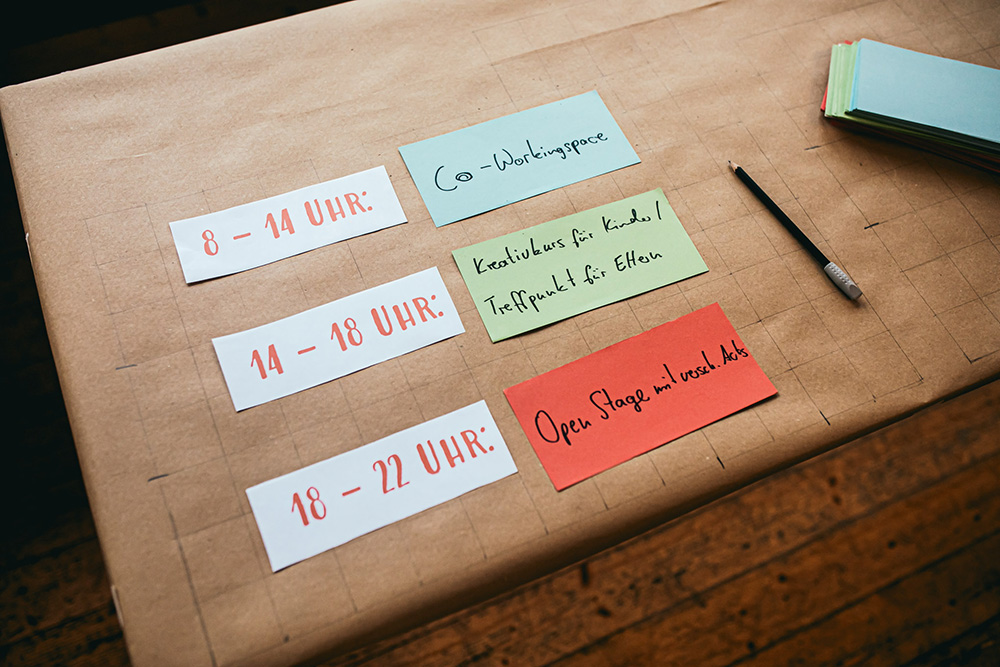 8 – 14 UHR:
Co-Workingspace
14 – 18 UHR:
Kreativkurs für Kinder/
Treffpunkt für Eltern
18 – 22 UHR:
Open Stage mit versch. Acts